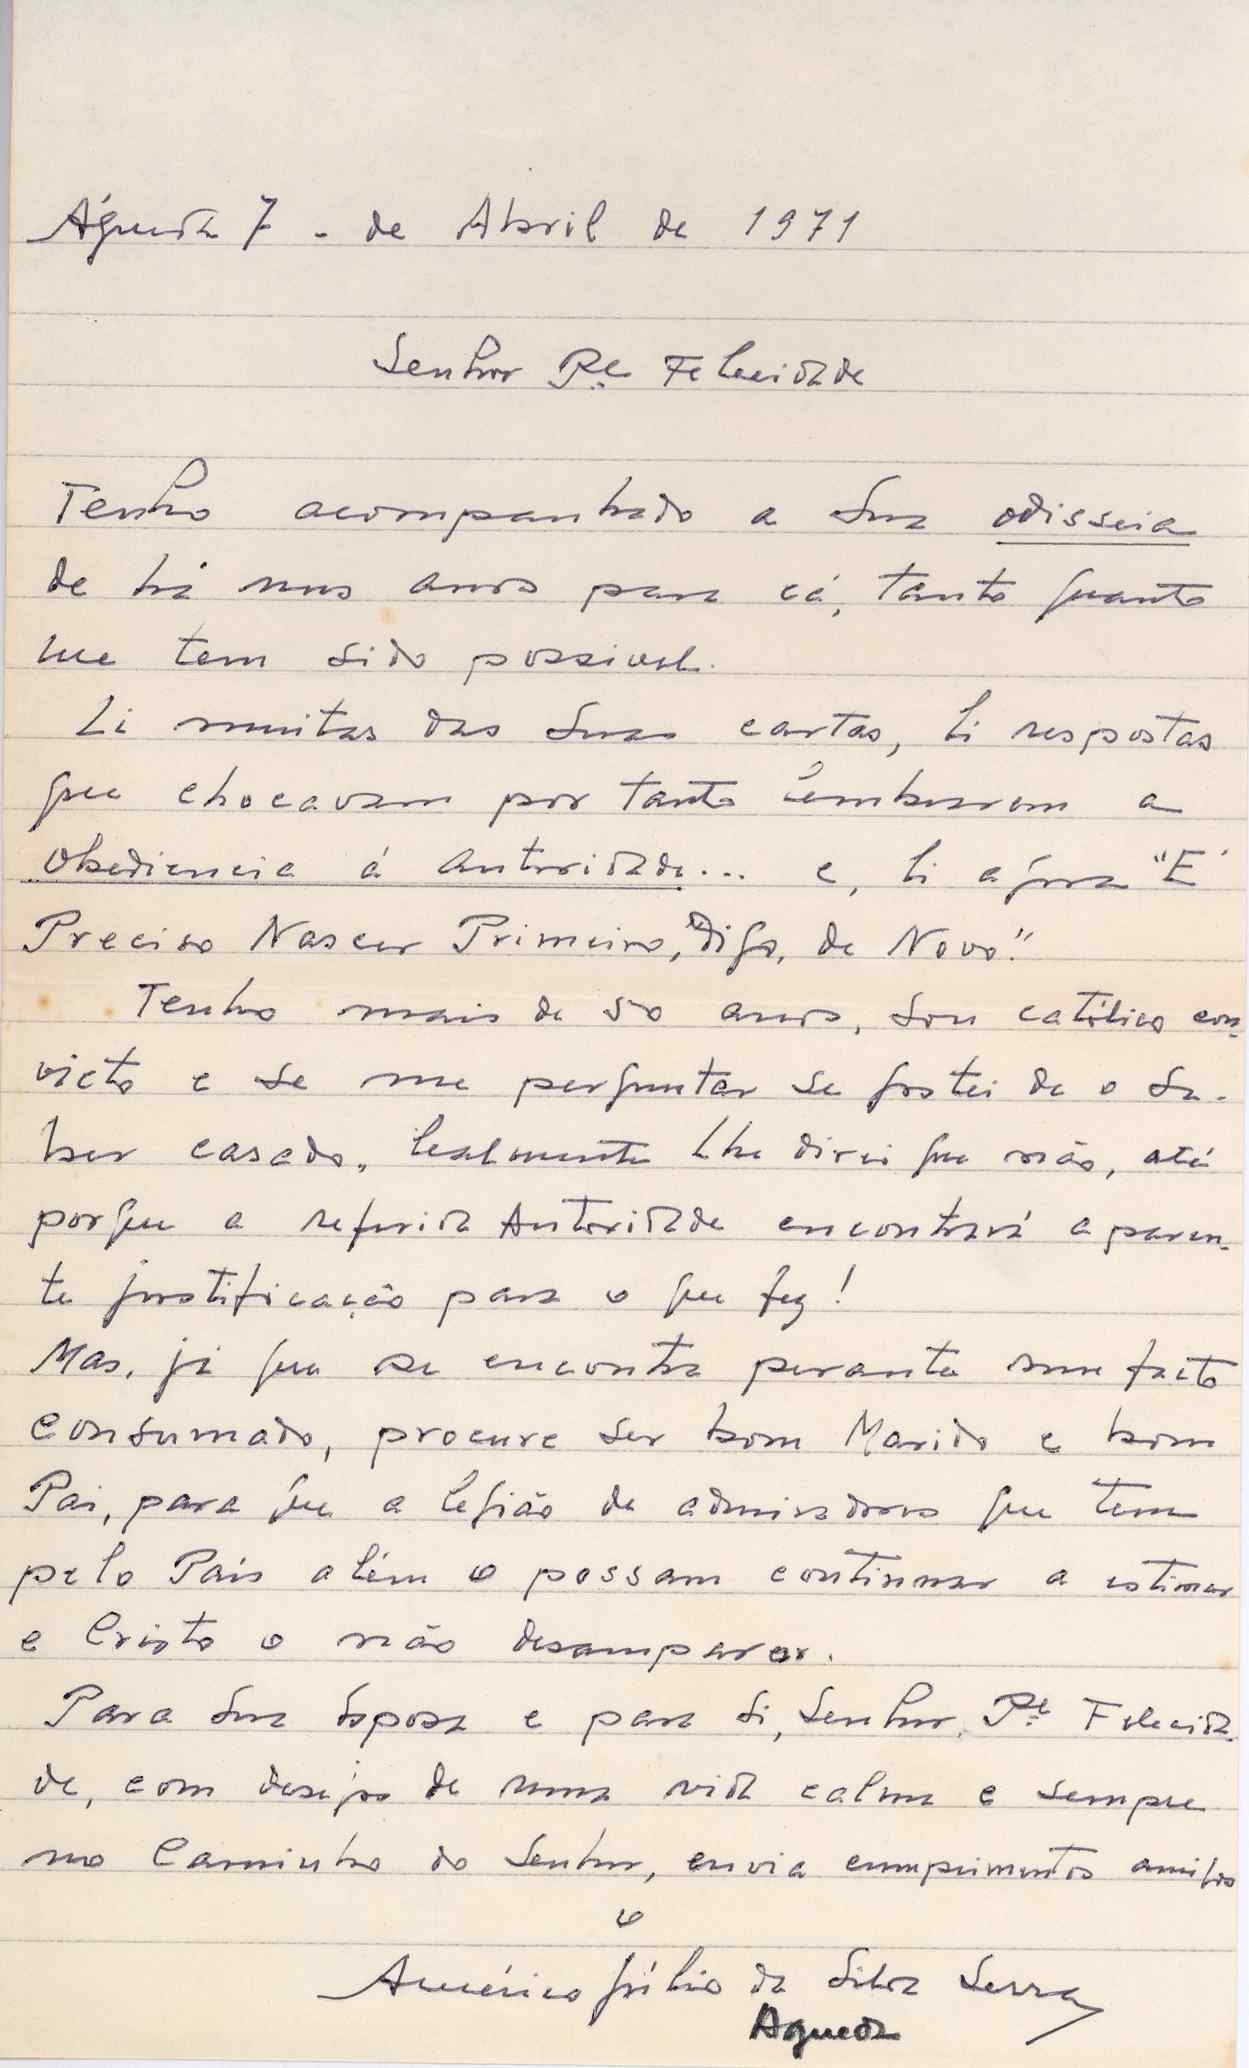 Águeda 7 - de Abril de 1971
Senhor Pe. Felicidade
Tenho acompanhado a sua odisseia
de há uns anos para cá, tanto quanto
me tem sido possivel.
Li muitas das suas cartas, li respostas
que chocavam por tanto lembrarem a
obediencia á autoridade... e, li agora "É
Preciso Nascer Primeiro, "digo, de Novo".
Tenho mais de 50 anos, sou católico con-
victo e se me perguntar se gostei de o sa-
ber casado, lealmente lhe direi que não, até
porque a referida Autoridade encontrará aparen-
te justificação para o que fez!
Mas, já que se encontra perante um facto
consumado, procure ser bom Marido e bom
Pai, para que a legião de admiradores que tem
pelo País além o possam continuar a estimar
e Cristo o não desamparar.
Para sua Esposa e para si, Senhor Pe. Felicida-
de, com desejo de uma vida calma e sempre
no Caminho do Senhor, envia cumprimentos amigos
o
Américo Júlio da Silva Serra
Agueda